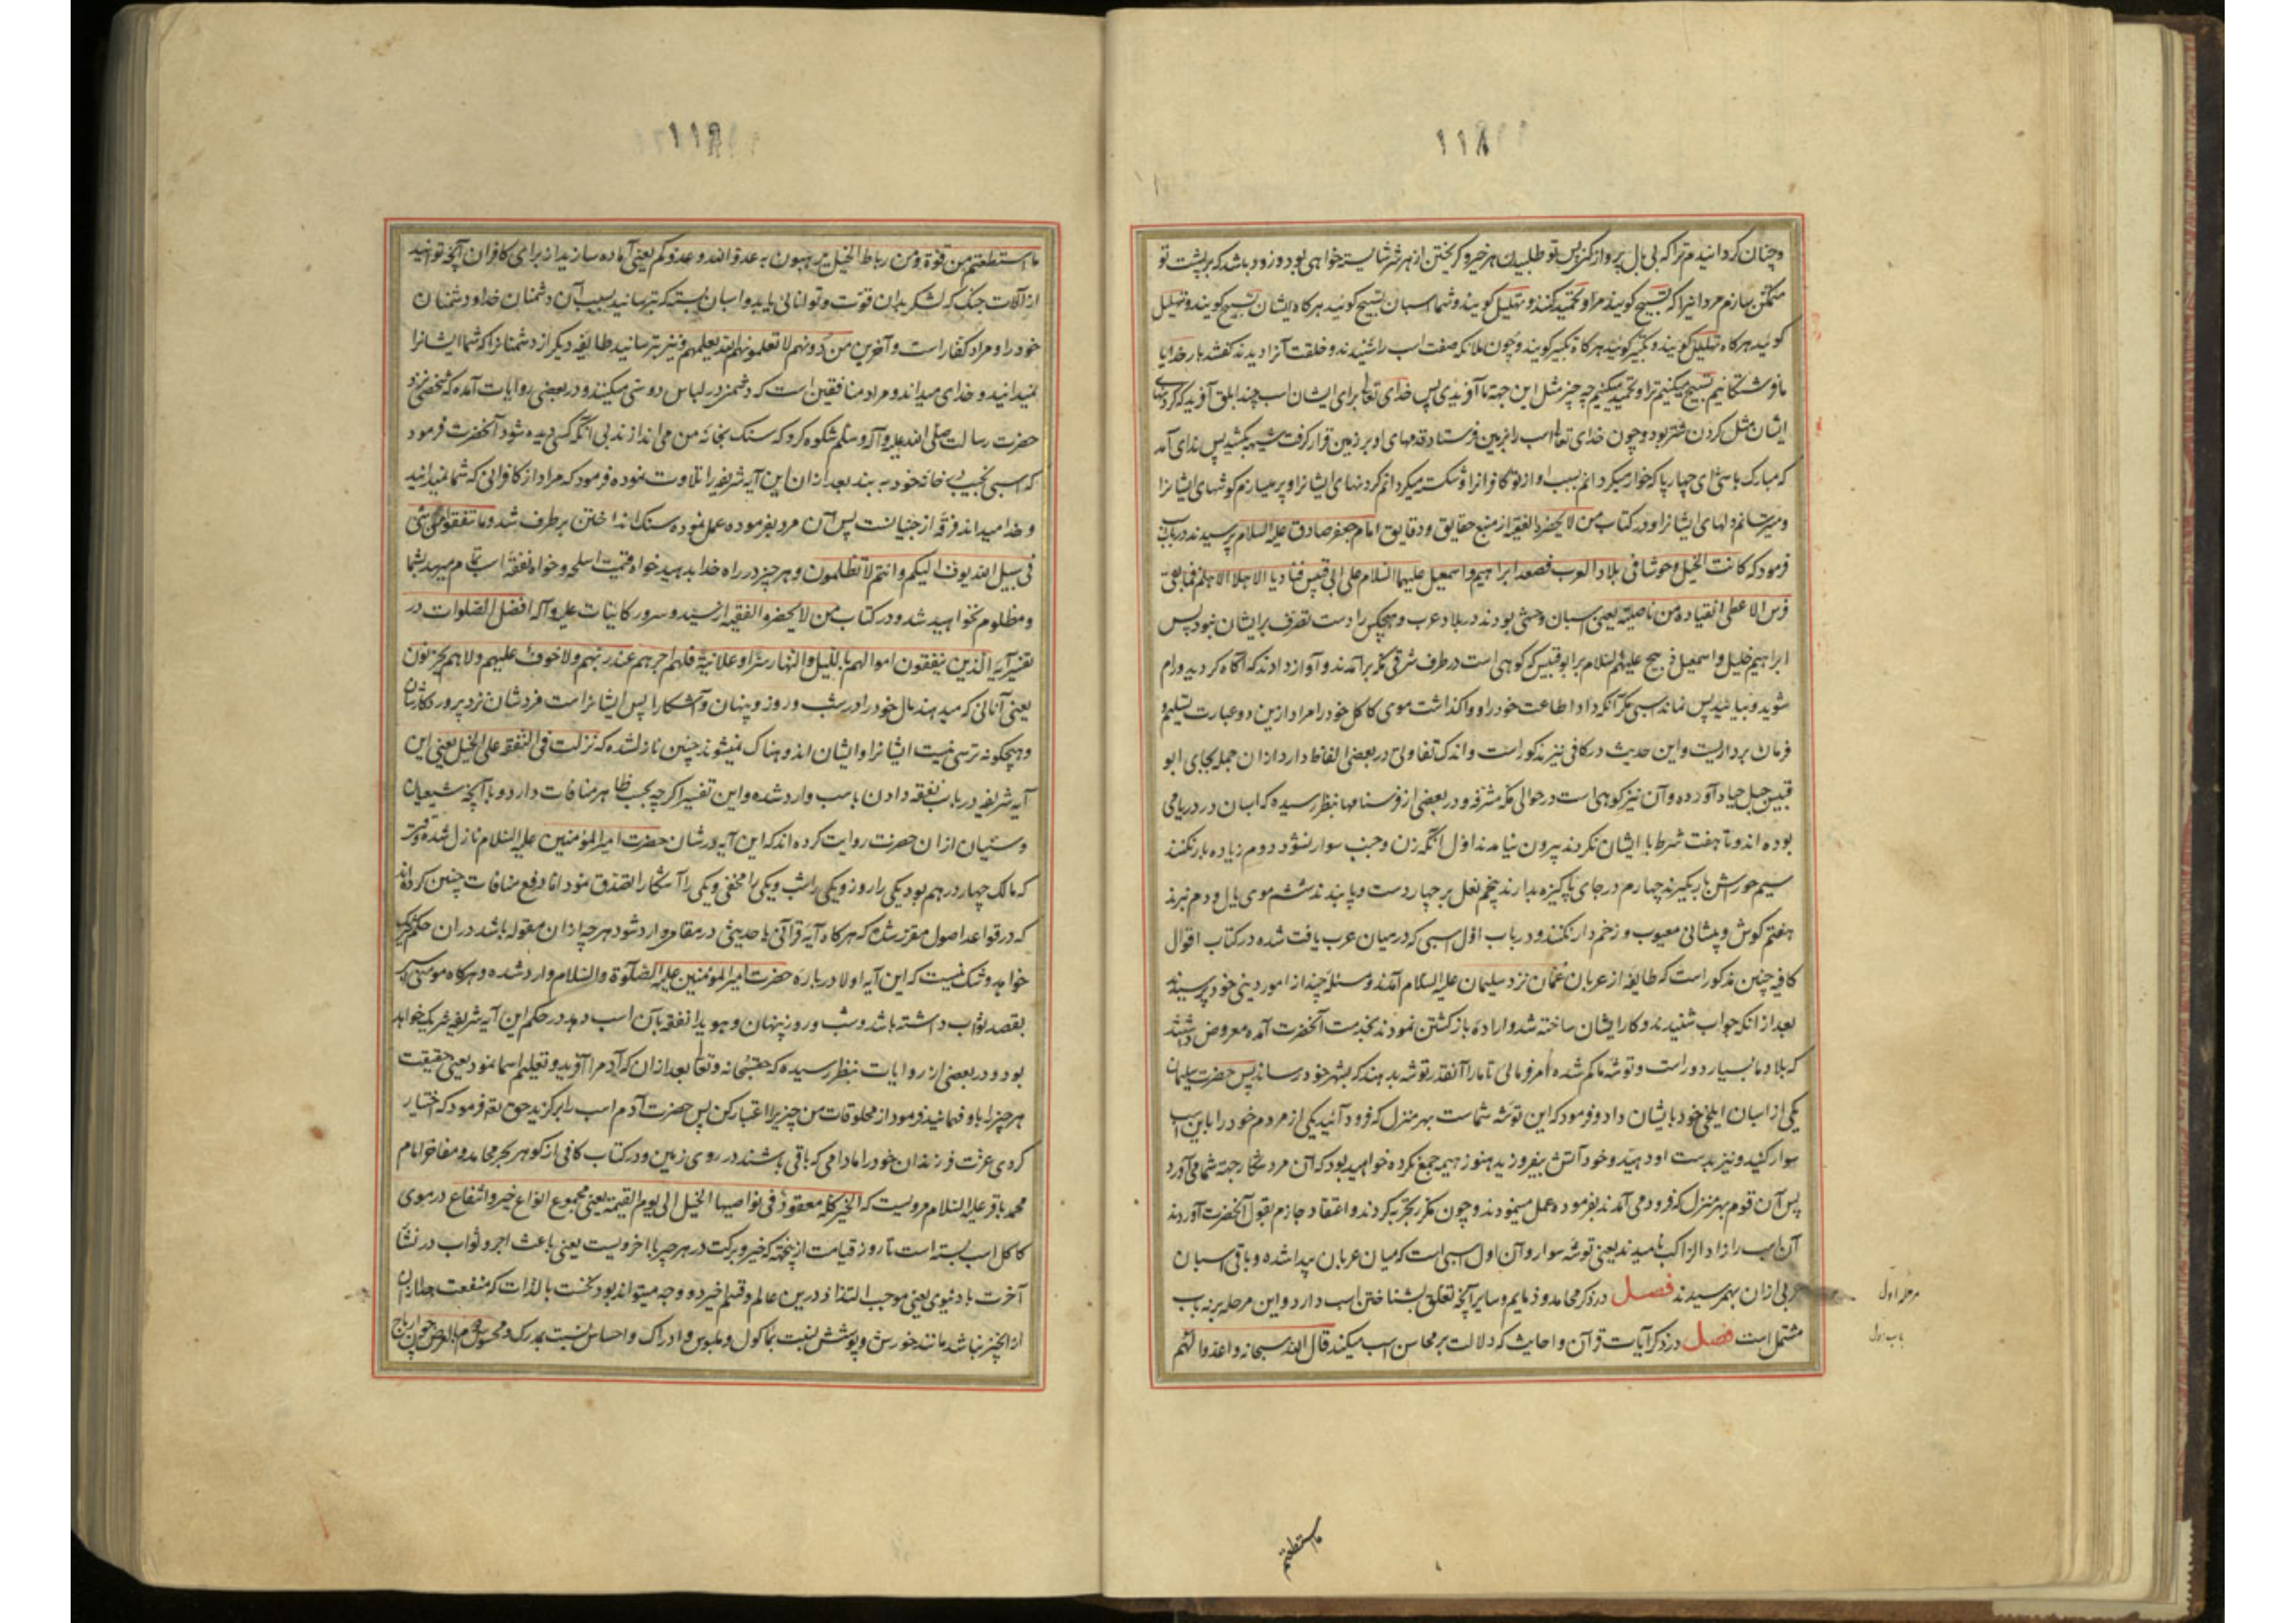 ١١٨
وچنان گردانیدم ترا که بی بال پرواز کنی پس تو طلبیدن هر خیر و گریختن از هر شر شایسته خواهی بود و زود باشد که بر پشت تو
متمکن سازم مردانیرا که تسبیح گویند مرا و تحمید کنند و تهلیل گویند و شما اسبان تسبیح گوئید هرگاه ایشان تسبیح گویند و تهلیل
گوئید هرگاه تهلیل گویند و تکبیر گوئید هرگاه تکبیر گویند و چون ملائکه صفت اسب را شنیدند و خلقت آنرا دیدند گفتند بار خدایا
ما فرشتگانیم تسبیح میکنیم ترا و تحمید میکنیم چه چیز مثل این جهة ما آفریدی پس خدای تعالی برای ایشان اسب چند ابلق آفرید که گردنهای
ایشان مثل گردن شتر بود و چون خدای تعالی اسب را بزمین فرستاد قدمهای او بر زمین قرار گرفت شیهه کشید پس ندای آمد
که مبارک باشی ای چهارپا که خوار میگردانم بسبب آواز تو کافرانرا و شکسته میگردانم گردنهای ایشانرا و پر میسازم گوشهای ایشانرا
و میترسانم دلهای ایشانرا و در کتاب من لا یحضره الفقیه از منبع حقایق و دقایق امام جعفر صادق علیه السلام پرسیدند در باب اسب
فرمود که کانت الخیل وحوشا فی بلاد العرب فصعد ابراهیم و اسمعیل علیهما السلام علی ابی قبیس فنادیا الا هلا الا هلم فما بقی
فرس الا عطی القیاده من ناصیته یعنی اسبان وحشی بودند در بلاد عرب و هیچکس را دست تصرف بر ایشان نبود پس
ابراهیم خلیل و اسمعیل ذبیح علیهم السلام بر ابو قبیس که کوهی است در طرف شرقی مکه برآمدند و آواز دادند که آگاه گردید و رام
شوید و بیائید پس نماند اسبی مگر آنکه داد اطاعت خود را و واگذاشت موی کاکل خود را مراد ازین دو عبارت تسلیم و
فرمان برداریست و این حدیث در کافی نیز مذکور است و اندک تفاوتی در بعضی الفاظ دارد از آن جمله بجای ابو
قبیس جبل جیاد آورده و آن نیز کوهی است در حوالی مکه مشرفه و در بعضی از فرسنامها بنظر رسیده که اسبان در دریا می
بوده اند و تا هفت شرط با ایشان نکردند بیرون نیامدند اول آنکه زن و جنب سوار نشود دوم زیاده بار نکنند
سیم خورش باز نگیرند چهارم در جای پاکیزه بدارند پنجم نعل بر چهار دست و پا بندند ششم موی یال و دم نبرند
هفتم گوش و پیشانی معیوب و زخم دار نکنند و در باب اول اسبی که در میان عرب یافت شده در کتاب اقوال
کافیه چنین مذکور است که طایفه از عربان عمان نزد سلیمان علیه السلام آمدند و مسئله چند از امور دینی خود پرسیدند
بعد از آنکه جواب شنیدند و کار ایشان ساخته شد و اراده بازگشتن نمودند بخدمت آنحضرت آمده معروض داشتند
که بلاد ما بسیار دور است و توشه ما کم شده امر فرمائی تا ما را آنقدر توشه بدهند که بشهر خود رساند پس حضرت سلیمان
یکی از اسبان ایلخی خود بایشان داد و فرمود که این توشه شماست بهر منزل که فرود آئید یکی از مردم خود را باین اسب
سوار کنید و نیزه بدست او دهید و خود آتش بیفروزید هنوز هیمه جمع نکرده خواهید بود که آن مرد شکار جهة شما می آورد
پس آن قوم بهر منزل که فرود می آمدند بفرموده عمل مینمودند و چون مکرر تجربه کردند و اعتقاد جازم بقول آنحضرت آوردند
آن اسب را زاد الراکب نامیدند یعنی توشه سوار و آن اول اسبی است که میان عربان پیدا شده و باقی اسبان
عربی از آن بهمرسیدند فصل در ذکر محامد و ذمایم و سایر آنچه تعلق بشناختن اسب دارد و این مرحله بر نه باب
مشتمل است فصل در ذکر آیات قرآن و احادیث که دلالت بر محاسن اسب میکند قال الله سبحانه واعدوا لهم
مرحله اول
باب اول
ما استطعتم
١١٩
ما استطعتم من قوة ومن رباط الخیل ترهبون به عدو الله وعدوکم یعنی آماده سازید از برای کافران آنچه توانید
از آلات جنگ که لشکر بدان قوت و توانائی یابد و اسبان بسته که بترسانید بسبب آن دشمنان خدا و دشمنان
خود را و مراد کفار است وآخرین من دونهم لا تعلمونهم الله یعلمهم و نیز بترسانید طایفه دیگر از دشمنانرا که شما ایشانرا
نمیدانید و خدای میداند و مراد منافقین است که دشمنی در لباس دوستی میکنند و در بعضی روایات آمده که شخصی نزد
حضرت رسالت صلی الله علیه وآله وسلم شکوه کرد که سنگ بخانه من می اندازند بی آنکه کسی دیده شود آنحضرت فرمود
که اسبی نجیب در خانه خود به بند بعد از آن این آیه شریفه را تلاوت نموده فرمود که مراد از کافرانی که شما نمیدانید
و خدا میداند فرقه از جنیانست پس آن مرد بفرموده عمل نموده سنگ انداختن برطرف شد وما تنفقوا من شئ
فی سبیل الله یوف الیکم وانتم لا تظلمون و هر چیز در راه خدا بدهید خواه قیمت اسلحه و خواه نفقه اسب تمام میرسد بشما
و مظلوم نخواهید شد و در کتاب من لا یحضره الفقیه از سید و سرور کاینات علیه وآله افضل الصلوات در
تفسیر آیه الذین ینفقون اموالهم باللیل والنهار سرا وعلانیة فلهم اجرهم عند ربهم ولا خوف علیهم ولا هم یحزنون
یعنی آنانی که میدهند مال خود را در شب و روز و پنهان و آشکارا پس ایشانراست مزدشان نزد پروردگارشان
و هیچگونه ترسی نیست ایشانرا و ایشان اندوهناک نمیشوند چنین نازل شده که نزلت فی النفقه علی الخیل یعنی این
آیه شریفه در باب نفقه دادن باسب وارد شده و این تفسیر اگرچه بحسب ظاهر منافات دارد و با آنچه شیعیان
و سنیان از آن حضرت روایت کرده اند که این آیه در شان حضرت امیرالمؤمنین علیه السلام نازل شده
که مالک چهار درهم بود یکی را روز و یکی را شب و یکی را مخفی و یکی را آشکارا تصدق نمود اما دفع منافات چنین کرده اند
که در قواعد اصول مقرر شده که هرگاه آیه قرآنی یا حدیثی در مقامی وارد شود هرچه از آن مقوله باشد در آن حکم شریک
خواهد و شک نیست که این آیه اولا درباره حضرت امیرالمؤمنین علیه الصلوة والسلام وارد شده و هرگاه مؤمنی اسبی
بقصد ثواب داشته باشد و شب و روز پنهان و هویدا نفقه بآن اسب دهد در حکم این آیه شریفه شریک خواهد
بود و در بعضی از روایات بنظر رسیده که حق سبحانه وتعالی بعد از آن که آدم را آفرید و تعلیم اسما نمود یعنی حقیقت
هر چیز را باو فهمانید فرمود از مخلوقات من چیزیرا اختیار کن پس حضرت آدم اسب را برگزید حق تعالی فرمود که اختیار
کردی عزت فرزندان خود را مادامی که باقی باشند در روی زمین و در کتاب کافی از گوهر بحر محامد و مفاخر امام
محمد باقر علیه السلام مرویست که الخیر کله معقود فی نواصیها الخیل الی یوم القیمة یعنی مجموع انواع خیر و انتفاع در موی
کاکل اسب بسته است تا روز قیامت از آنجهت که خیر و برکت در هر چیز یا اخرویست یعنی باعث اجر و ثواب در نشأ
آخرت یا دنیوی یعنی موجب التذاذ درین عالم و قسم اخیر دو وجه میتواند بود نخست بالذات که منفعت جدا
از آنچیز نباشد مانند خورش و پوشش نسبت بمأکول و ملبوس و ادراک و احساس نسبت بمدرک و محسوس دوم بالعرض چون ارباح